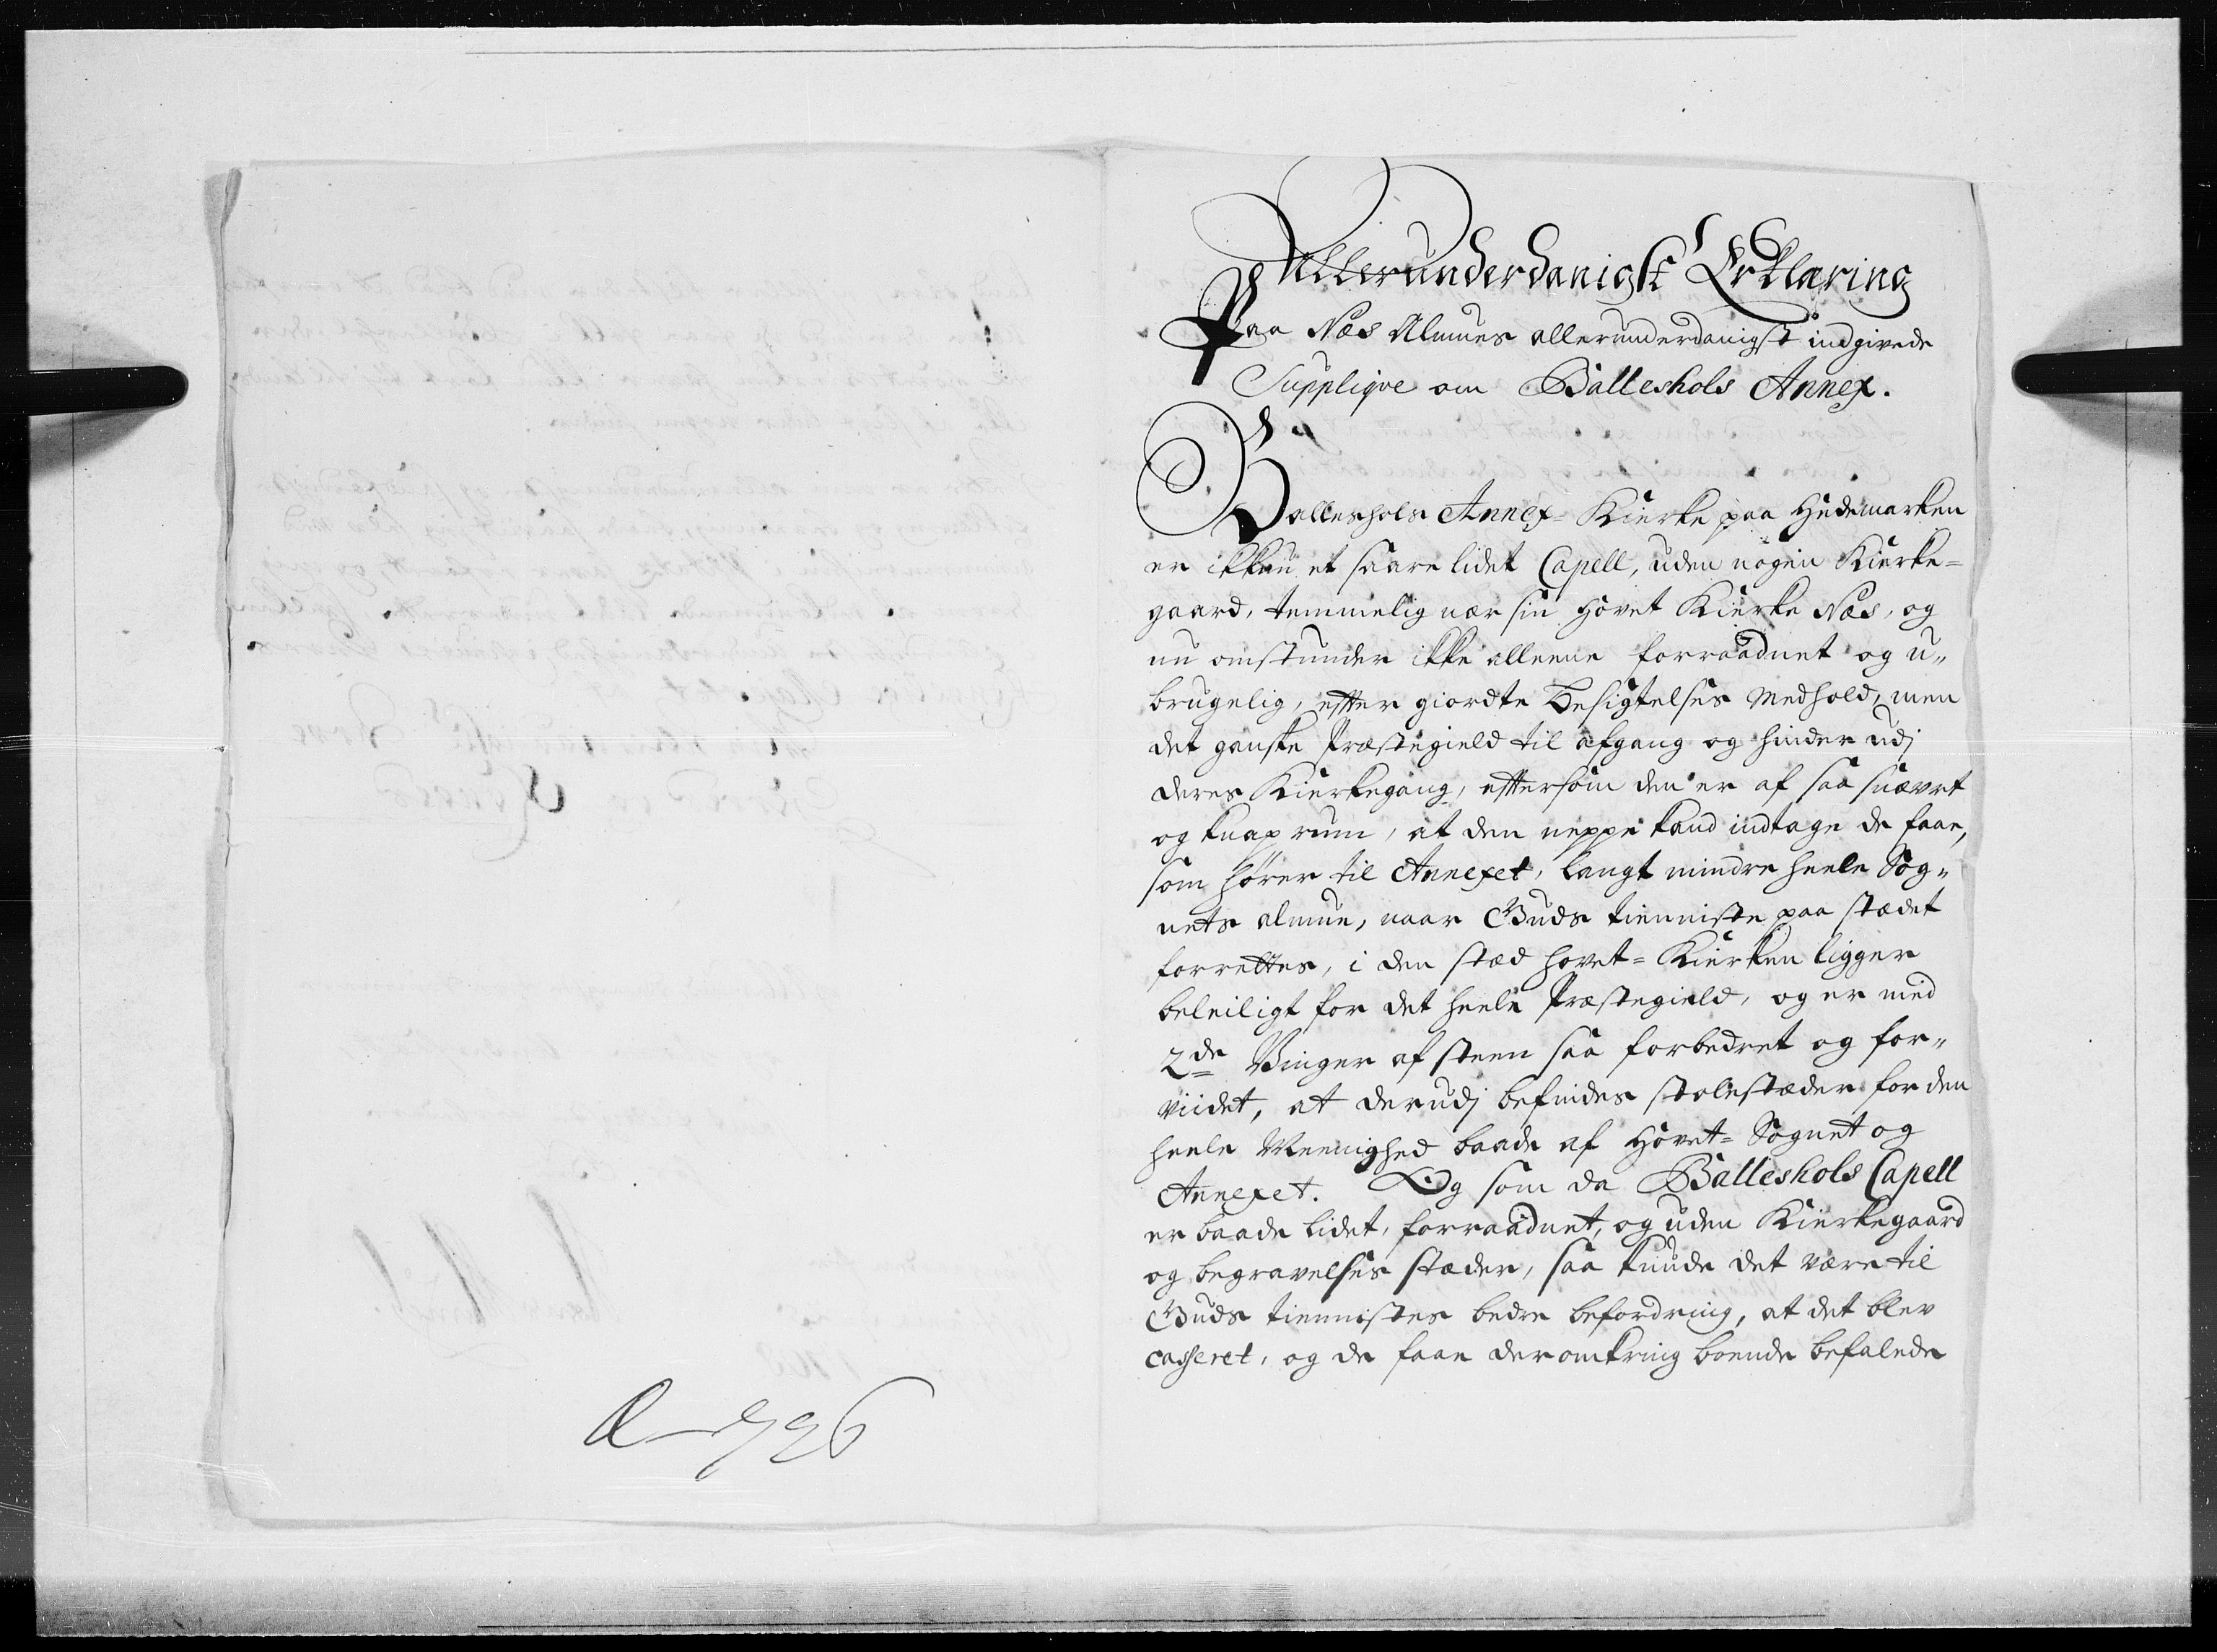 Allerunderdanigst Erklæring
Paa Næs Almues allerunderdanigst indgivede
Supplique om Balleshols Annex.
Balleshols Annex-Kierke paa Hedemarken
er ikkun et saare lidet Capell, uden nogen Kierke=
gaard, temmelig nær sin Hovet Kierke Næs, og
nu omstunder ikke alleene forraadnet og u„
brugelig, effter giordte Besigtelses Medhold, men
det ganske Præstegield til afgang og hinder udj
deres Kierkegang, efftersom den er af saa snævert
og knap rum, at den neppe kand indtage de faae,
som hører til Annexet, langt mindre heele Sog„
nets almue, naar Guds tienniste paa stædet
forrettes, i den stæd hovet=Kierken ligger
beleiligt for det heele Præstegield, og er med
2de Vinger af steen saa forbedret og for„
viidet, at derudj befindes stolestæder for den
heele Meenighed baade af Hovet=Sognet og
Annexet. Og som da Balleshols Capell
er baade lidet, forraadnet, og uden Kierkegaard
og begravelses stæder, saa kunde det være til
Guds tiennistes bedre befordring, at det blev
casseret, og de faae deromkring boende befalede